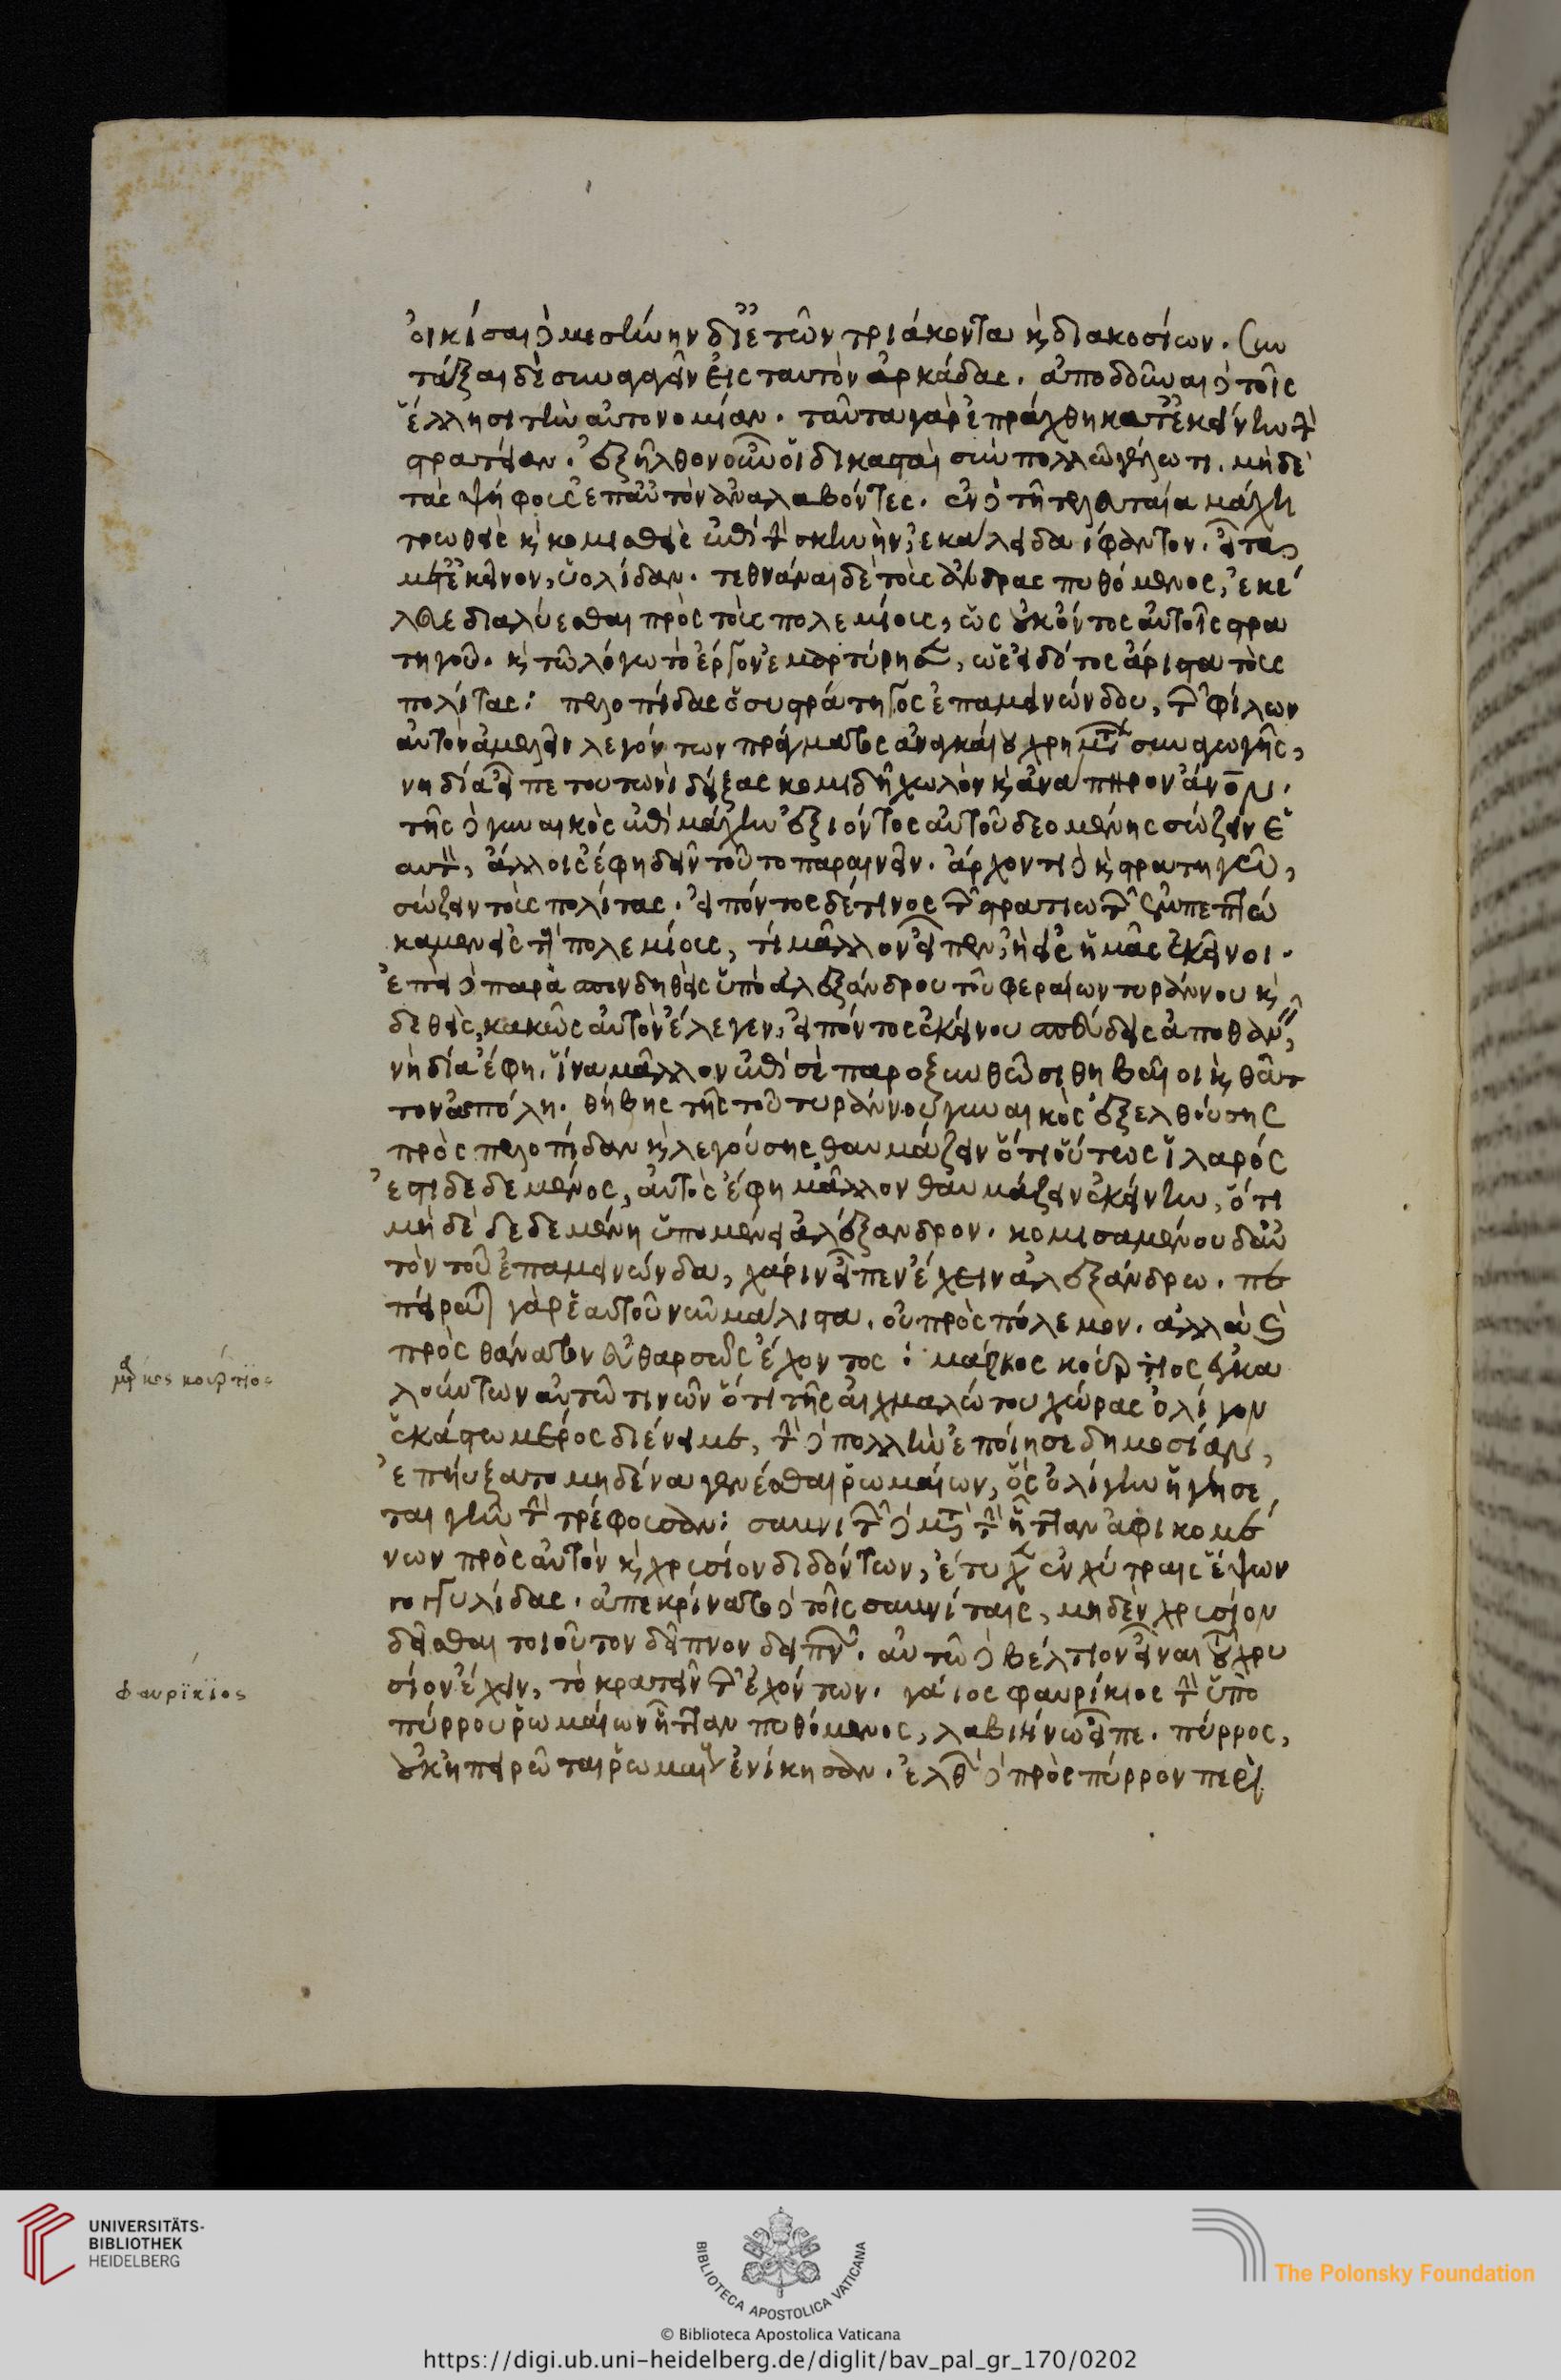 οἰκίσαι δὲ μεσήνην δι᾽ ἐτῶν τριάκοντα καὶ διακοσίων. συν
τάξαι δὲ συναγαγεῖν εἰς ταυτὸν ἀρκάδας. ἀποδοῦναι δὲ τοῖς
ἕλλησι τὴν αὐτονομίαν. ταῦτα γὰρ ἐπράχθη κατ᾽ ἐκείνην τὴν
στρατείαν. ἐξῆλθον οὖν οἱ δικασταὶ σὺν πολλῷ γέλωτι. μὴ δὲ
τὰς ψήφους ἐπ᾽ αὐτὸν ἀναλαβόντες. ἐν δὲ τῇ τελευταία μάχη
τρωθεὶς καὶ κομισθεὶς ἐπὶ τὴν σκηνὴν, ἐκάλει δαιφαντον. εἶτα
μετ᾽ ἐκεῖνον, ἰολίδαν. τεθνάναι δὲ τοὺς ἄνδρας πυθόμενος, ἐκέ
λευε διαλύεσθαι πρὸς τοὺς πολεμίους, ὡς οὐκ ὄντος αὐτοῖς στρα
τηγοῦ. καὶ τῷ λόγω τὸ ἔργον ἐμαρτύρησεν, ὡς εἰδότος ἄριστα τοὺς
πολίτας: πελοπίδας ὁ συστράτηγος ἐπαμεινώνδου, τῶν φίλων
αὐτὸν ἀμελεῖν λεγόντων πράγματος ἀναγκαίου χρημάτων συναγωγῆς,
νὴ δία εἶπε τουτωνὶ δείξας κομιδῆ χωλὸν καὶ ἀνάπηρον ἄνον.
τῆς δὲ γυναικὸς ἐπὶ μάχην ἐξιόντος αὐτοῦ δεομένης σώζειν ἑ
αυτὸν, ἄλλοις ἔφη δεῖν τοῦτο παραινεῖν. ἄρχοντι δὲ καὶ στρατηγῷ,
σώζειν τοὺς πολίτας. εἰπόντος δέ τινος τῶν στρατιωτῶν ἐμπεπτώ
καμεν εἰς τοὺς πολεμίους, τί μᾶλλον εἶπεν, ἢ εἰς ἡμᾶς ἐκεῖνοι.
ἐπεὶ δὲ παρασπονδηθεὶς ὑπὸ ἀλεξάνδρου τοῦ φεραίων τυράννου καὶ
δεθεὶς, κακῶς αὐτὸν ἔλεγεν, εἰπόντος ἐκείνου σπεύδεις ἀποθανεῖν,
νὴ δία ἔφη. ἵνα μᾶλλον ἐπὶ σὲ παροξυνθῶσι θηβαῖοι καὶ θᾶτ
τον ἀπόλη. θήβης τῆς τοῦ τυράννου γυναικὸς ἐξελθούσης
πρὸς πελοπίδαν καὶ λεγούσης θαυμάζειν ὅτι οὕτως ἱλαρός
ἐστι δεδεμένος, αὐτὸς ἔφη μᾶλλον θαυμάζειν ἐκείνην, ὅτι
μὴ δὲ δεδεμένη ὑπομένει ἀλέξανδρον. κομισαμένου δ᾽ αὖ
τὸν τοῦ ἐπαμεινώνδα, χάριν εἶπεν ἔχειν ἀλεξάνδρω. πε
πεῖραται γὰρ ἑαυτοῦ νῦν μάλιστα. οὐ πρὸς πόλεμον. ἀλλὰ καὶ
πρὸς θάνατον εὐθαρσῶς ἔχοντος: μάρκος κούρτιος ἐγκα
λούντων αὐτῷ τινῶν ὅτι τῆς αἰχμαλώτου χώρας ὀλίγον
ἑκάστω μέρος διένειμε, τὴν δὲ πολλὴν ἐποίησε δημοσίαν,
ἐπηύξατο μηδένα γενέσθαι ῥωμαίων, ὃς ὀλίγην ἡγήσε
ται γῆν τὴν τρέφουσαν: σαυνιτῶν δὲ μετὰ τὴν ἧτταν ἀφικομέ
νων πρὸς αὐτὸν καὶ χρυσίον διδόντων, ἔτυχεν ἐν χύτραις ἕψων
γογγυλίδας. ἀπεκρίνατο δὲ τοῖς σαυνίταις, μηδὲν χρυσίου
δεῖσθαι τοιοῦτον δεῖπνον δειπνῶν. αὐτῷ δὲ βέλτιον εἶναι τοῦ χρυ
σίον ἔχειν, τὸ κρατεῖν τῶν ἐχόντων. γάιος φαυρίκιος τὴν ὑπὸ
πύρρου ῥωμαίων ἧτταν πυθόμενος, λαβιήνω εἶπε. πύρρος,
οὐκ ἠπειρῶται ῥωμαίους ἐνίκησαν. ἐλθὼν δὲ πρὸς πύρρον περὶ
μάρκος κούρτϊος
φαυρϊκϊος
UNIVERSITÄTS-
BIBLIOTHEK
HEIDELBERG
BIBLIOTECA APOSTOLICA VATICANA
The Polonsky Foundation
© Biblioteca Apostolica Vaticana
https://digi.ub.uni-heidelberg.de/diglit/bav_pal_gr_170/0202